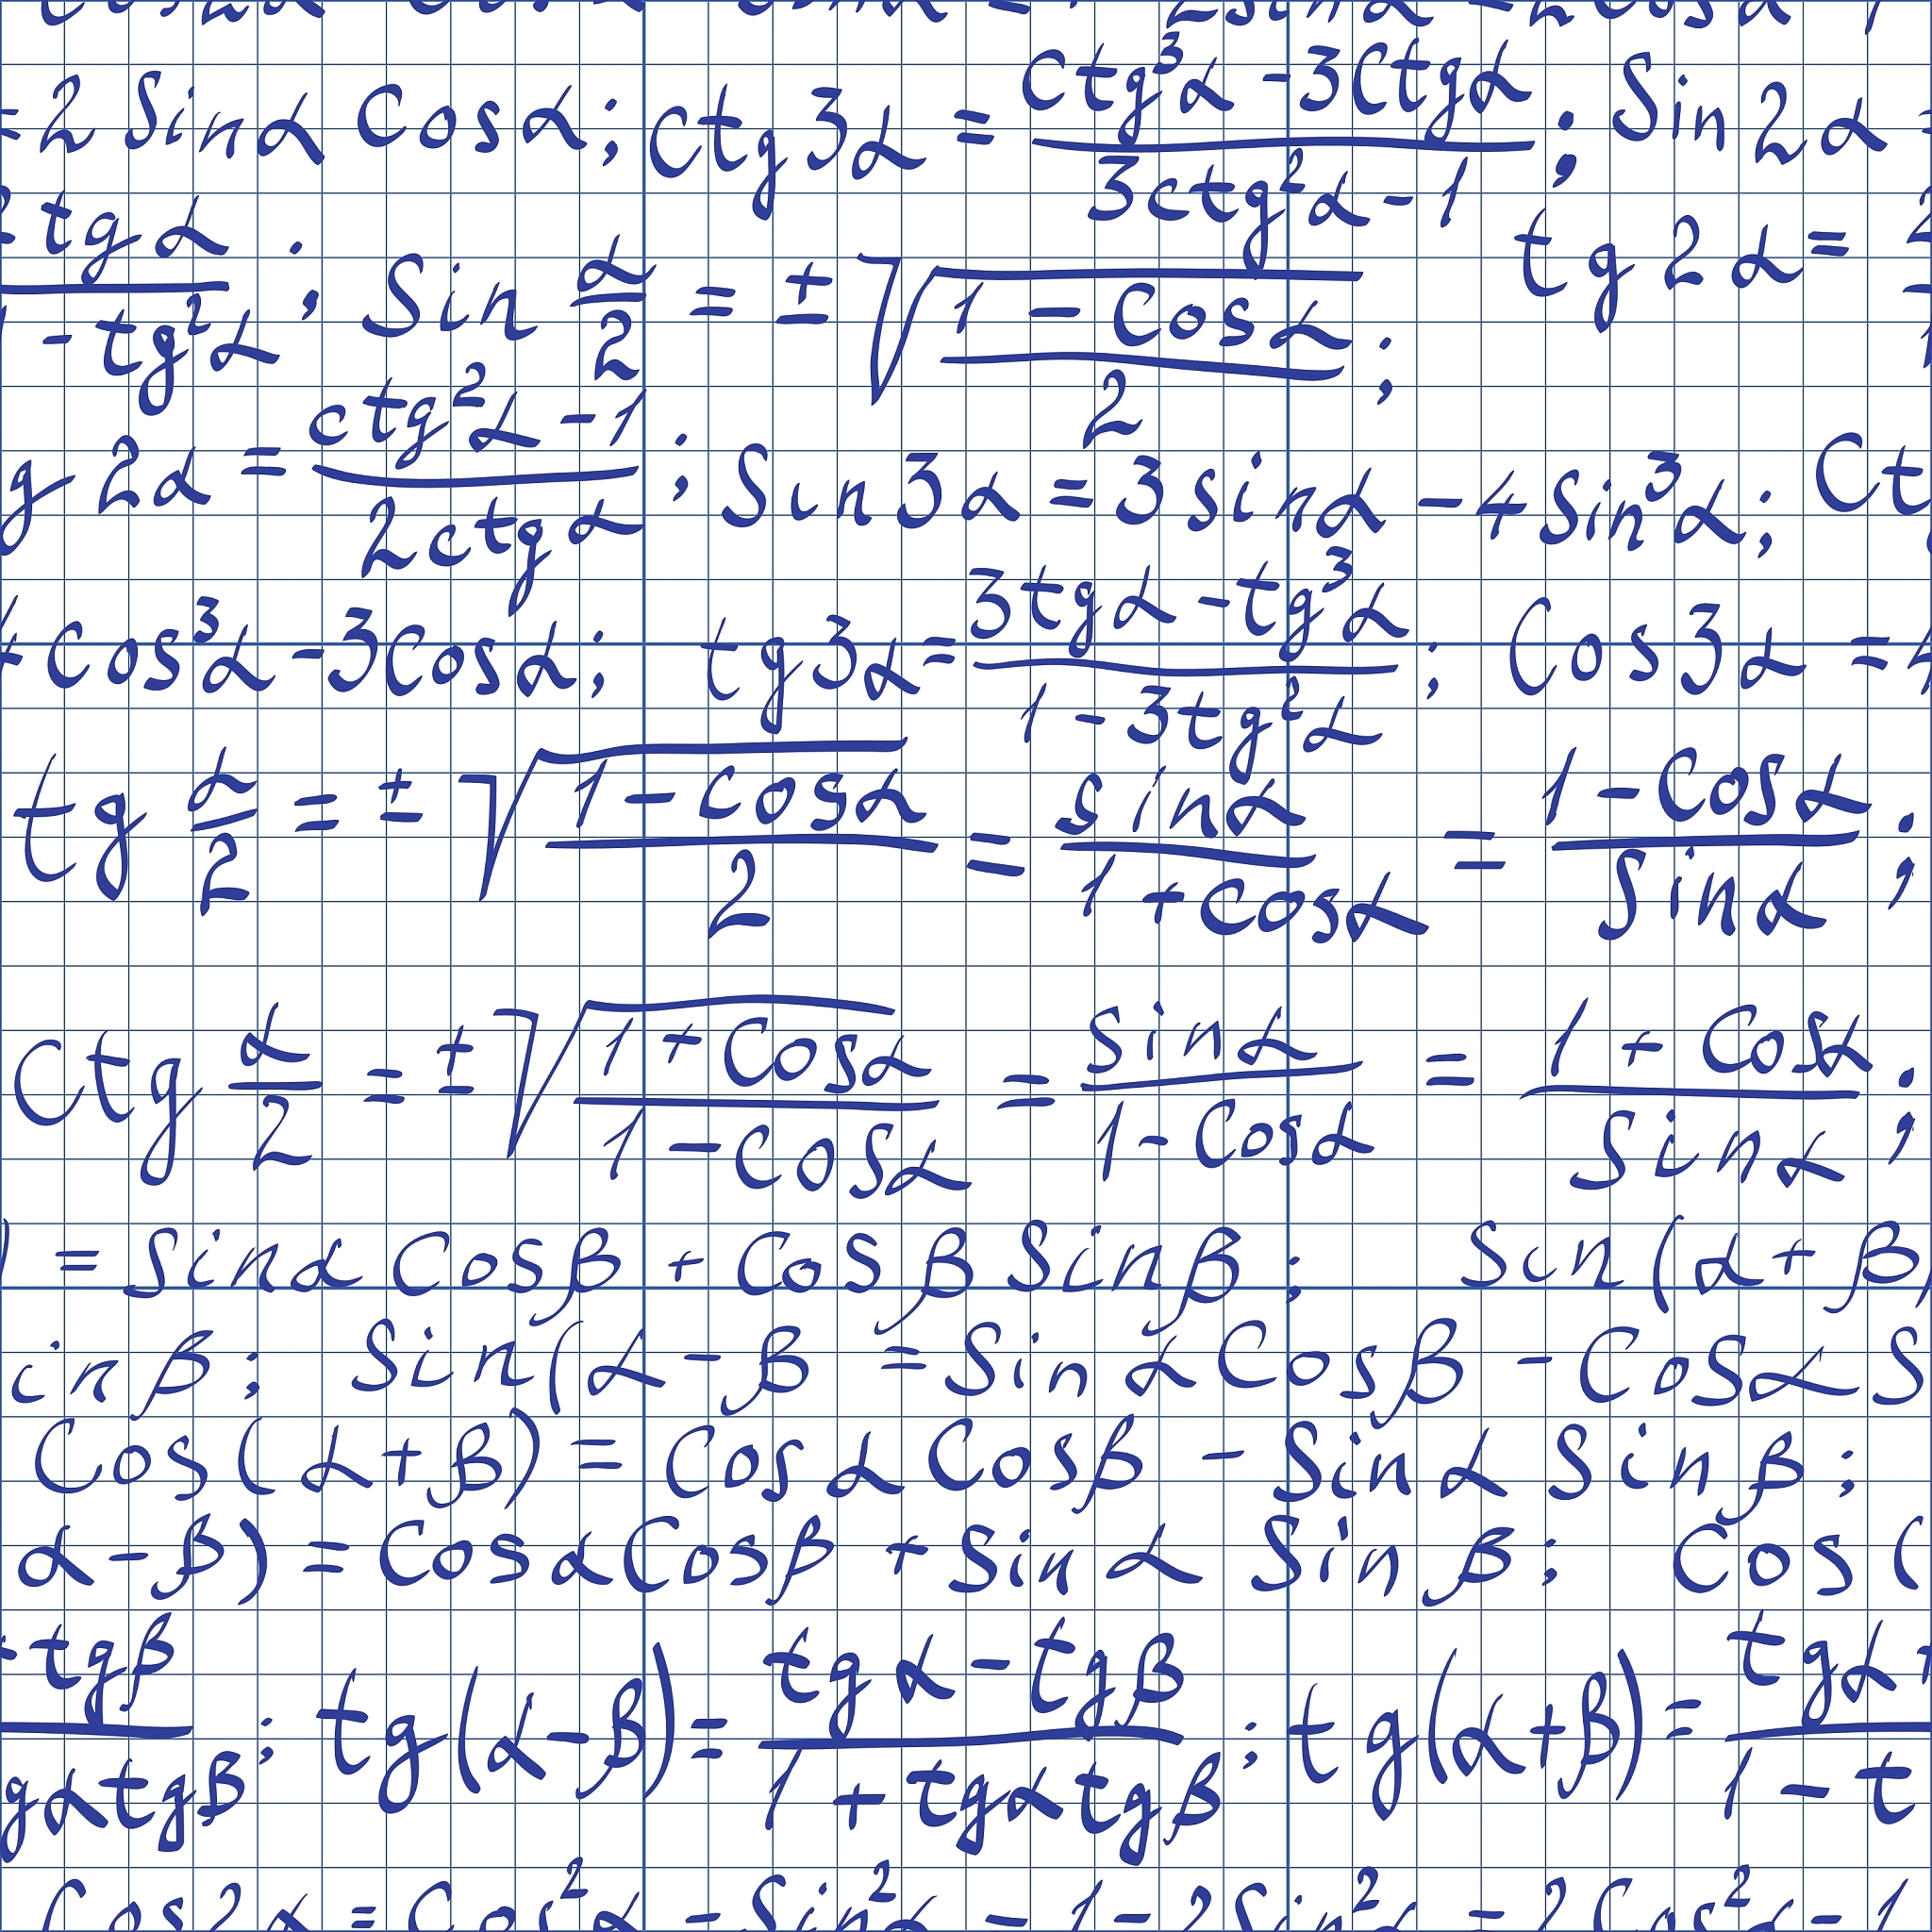 = 2 Sinα Cosα; Ctg 3α = (Ctg³α - 3Ctgα)/(3ctg²α - 1); Sin 2α =
2tgα/(1 - tg²α); Sin α/2 = ± √((1 - Cosα)/2); tg 2α =
g 2α = (ctg²α - 1)/(2ctgα); Sin 3α = 3 sinα - 4 Sin³α; Ct
4 Cos³α - 3Cosα; tg 3α = (3tgα - tg³α)/(1 - 3tg²α); Cos 3α = 4
tg α/2 = ± √((1 - Cosα)/2) = sinα/(1 + Cosα) = (1 - Cosα)/Sinα;
Ctg α/2 = ± √((1 + Cosα)/(1 - Cosα)) = Sinα/(1 - Cosα) = (1 + Cosα)/Sinα;
) = Sinα Cosβ + Cosβ Sinβ; Sin(α + β)
inβ; Sin(α - β = Sinα Cosβ - Cosα S
Cos(α + β) = Cosα Cosβ - Sinα Sinβ;
α - β) = Cosα Cosβ + Sinα Sinβ; Cos(
- tgβ / gα tgβ; tg(α - β) = (tgα - tgβ)/(1 + tgα tgβ); tg(α + β) = tgα / 1 - t
Cos 2α = Cos²α - Sin²α = 1 - 2Sin²α = 2Cos²α - 1